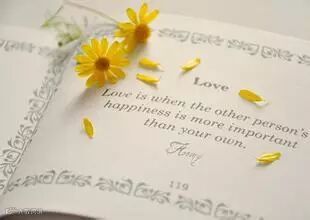 Love
Love is when the other person's
happiness is more important
than your own.
119